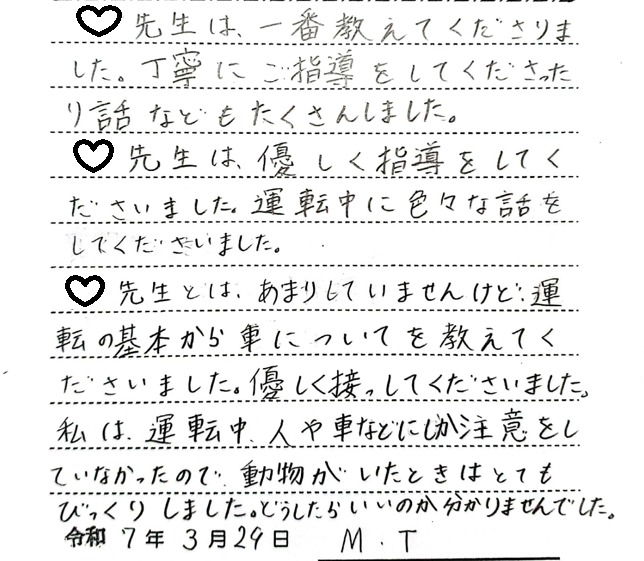 ♡先生は、一番教えてくださりま
した。丁寧にご指導をしてくださった
り話などもたくさんしました。
♡先生は、優しく指導をしてく
ださいました。運転中に色々な話を
してくださいました。
♡先生とは、あまりしていませんけど、運
転の基本から車についてを教えてく
ださいました。優しく接っしてくださいました。
私は、運転中、人や車などにしか注意をし
ていなかったので、動物がいたときはとても
びっくりしました。どうしたらいいのか分かりませんでした。
令和7年3月29日 M.T